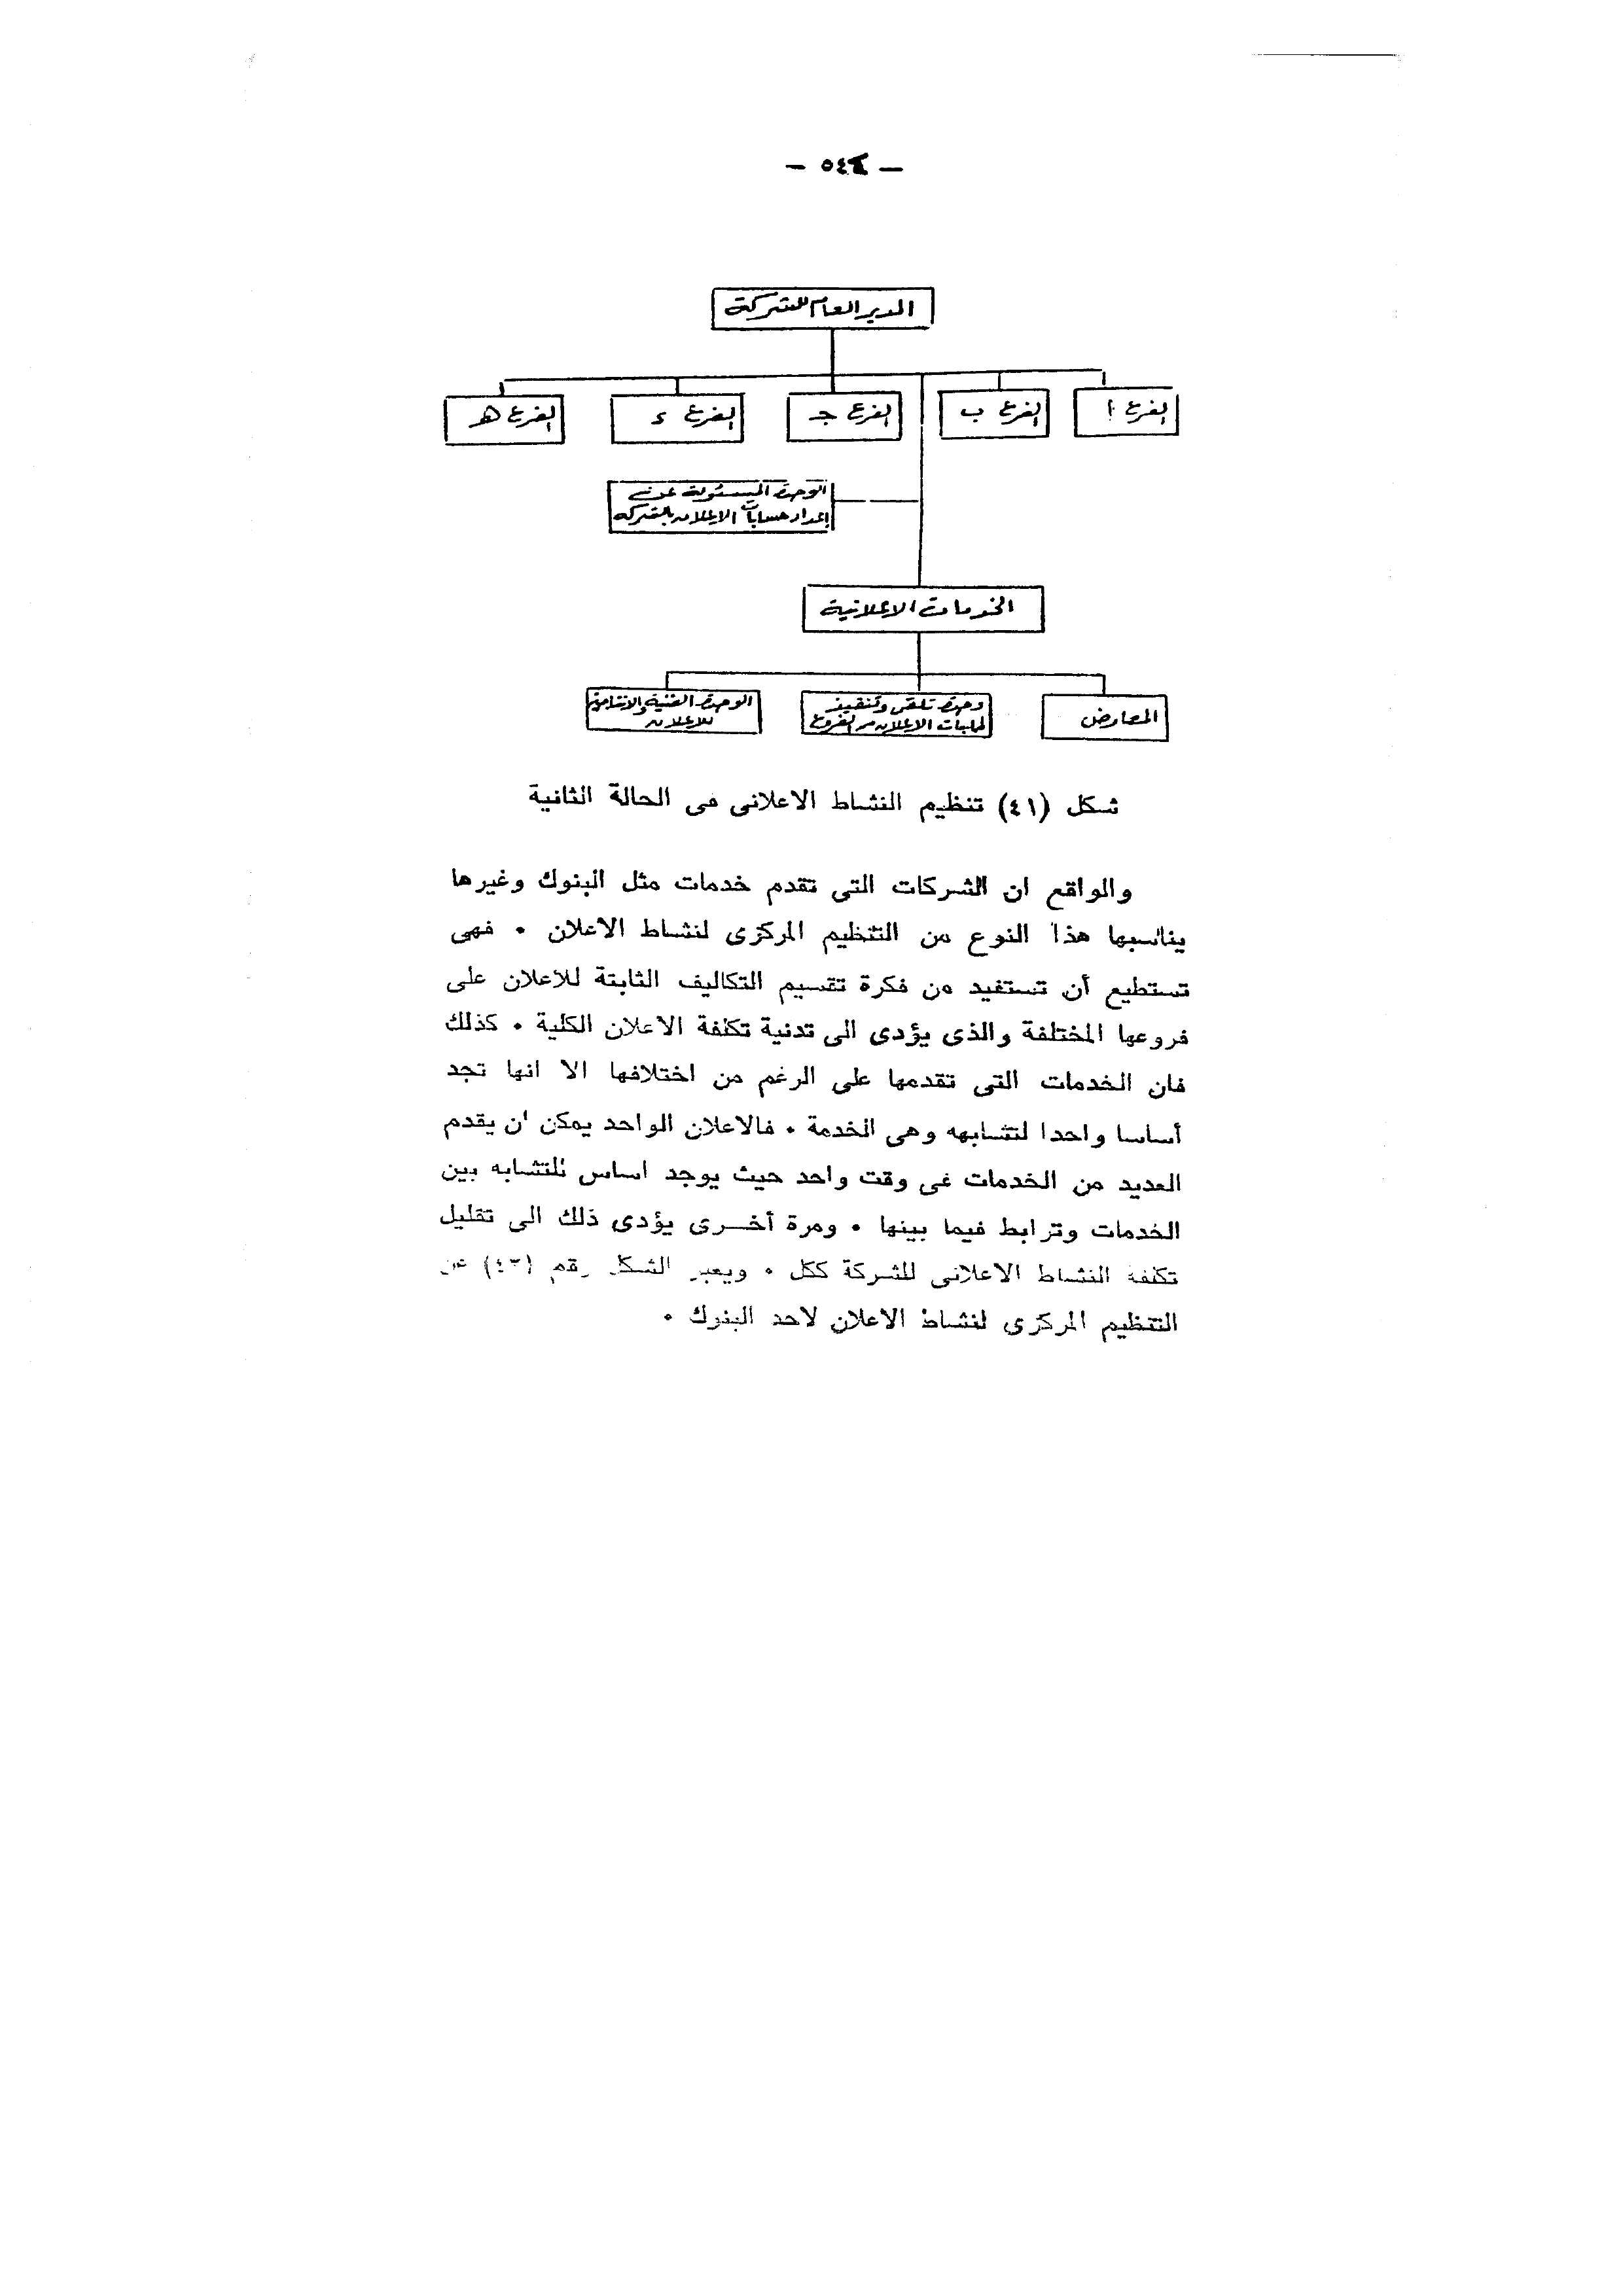 المدير العام للشركة
الفرع أ
الفرع ب
الفرع جـ
الفرع د
الفرع هـ
الوحدة المسئولة عن
إعداد حسابات الإعلان بالشركة
الخدمات الاعلانية
المعارض
وحدة تلقى وتنفيذ
طلبات الاعلان من الفروع
الوحدة الفنية
للاعلان
شكل (٤١) تنظيم النشاط الاعلانى فى الحالة الثانية
والواقع ان الشركات التى تقدم خدمات مثل البنوك وغيرها
يناسبها هذا النوع من التنظيم المركزى لنشاط الاعلان ٠ فهى
تستطيع أن تستفيد من فكرة تقسيم التكاليف الثابتة للاعلان على
فروعها المختلفة والذى يؤدى الى تدنية تكلفة الاعلان الكلية ٠ كذلك
فان الخدمات التى تقدمها على الرغم من اختلافها الا انها تجد
أساسا واحدا لتشابهه وهى الخدمة ٠ فالاعلان الواحد يمكن ان يقدم
العديد من الخدمات فى وقت واحد حيث يوجد اساس للتشابه بين
الخدمات وترابط فيما بينها ٠ ومرة أخـــرى يؤدى ذلك الى تقليل
تكلفة النشاط الاعلانى للشركة ككل ٠ ويعبر الشكل رقم عن
التنظيم المركزى لنشاط الاعلان لاحد البنوك ٠